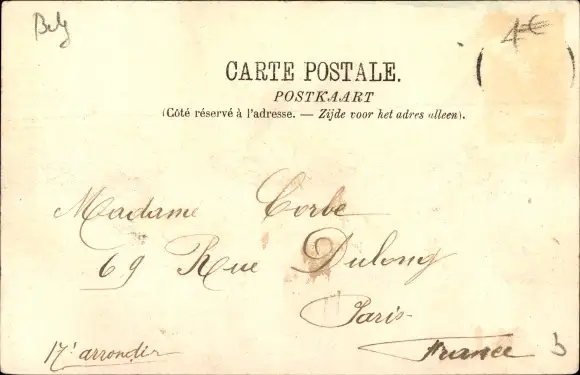 Belg
4€
CARTE POSTALE.
POSTKAART
(Côté réservé à l'adresse. — Zijde voor het adres alleen).
Madame Corbe
69 Rue Dulong
Paris
17e arrondir
France
b